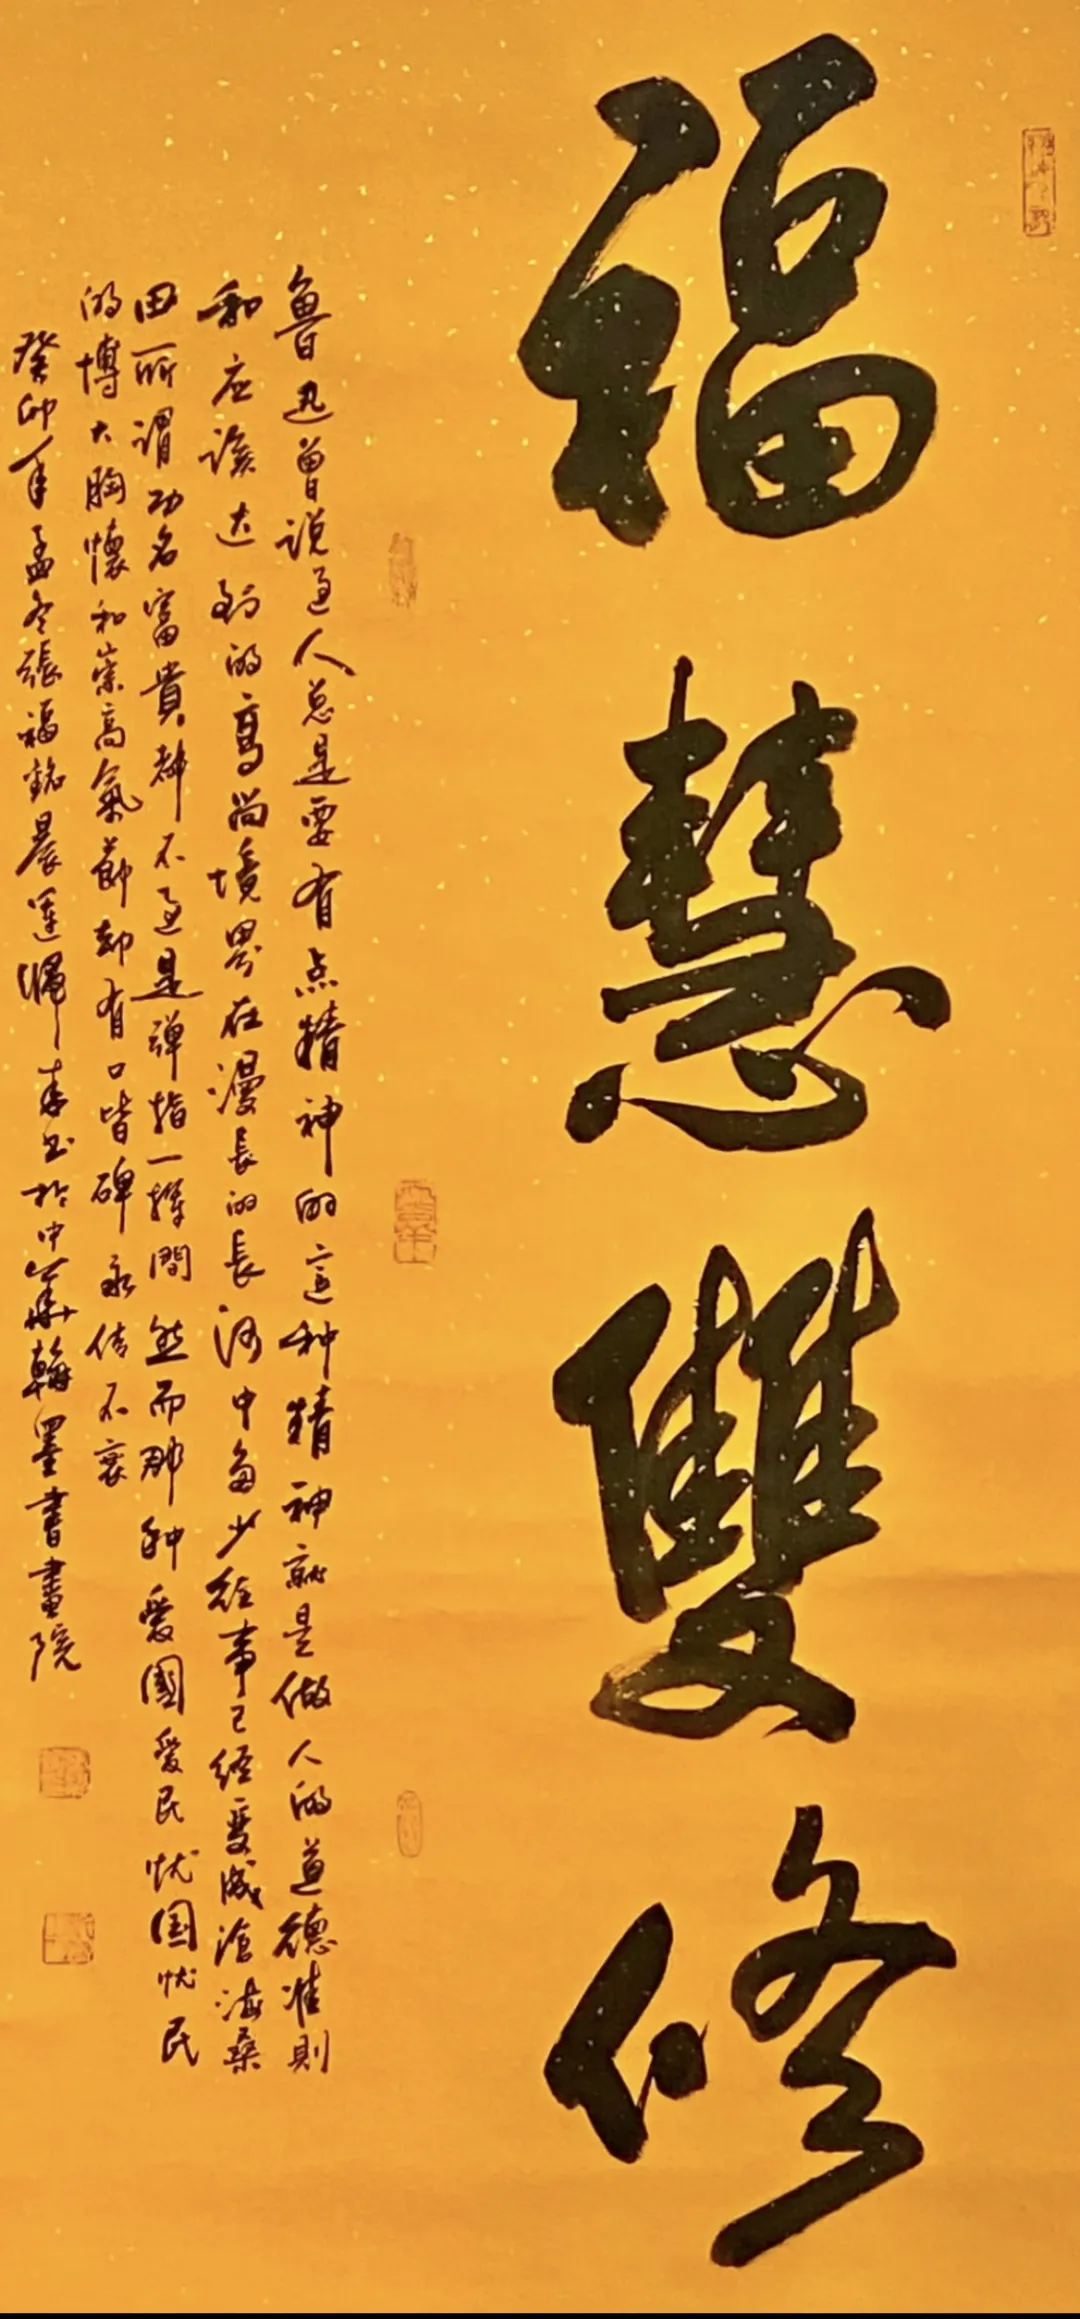 福慧雙修
魯迅曾说过人总是要有点精神的這种精神就是做人的道德准則
和应该达到的高尚境界在漫長的長河中多少往事已经变成滄海桑
田所谓功名富貴都不过是弹指一揮間然而那种爱國爱民忧国忧民
的博大胸懷和崇高氣節却有口皆碑永传不衰
癸卯年孟冬張福銘晨運揮毫书於中華翰墨書畫院